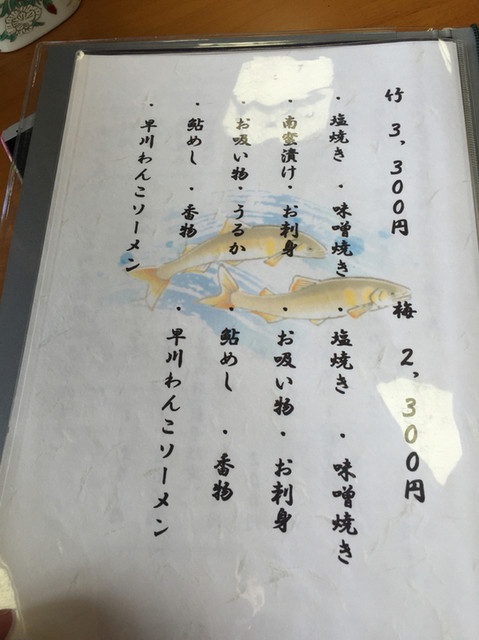 竹 3,300円
・塩焼き ・味噌焼き
・南蛮漬け・お刺身
・お吸い物・うるか
・鮎めし ・香物
・早川わんこソーメン
梅 2,300円
・塩焼き ・味噌焼き
・お吸い物・お刺身
・鮎めし ・香物
・早川わんこソーメン